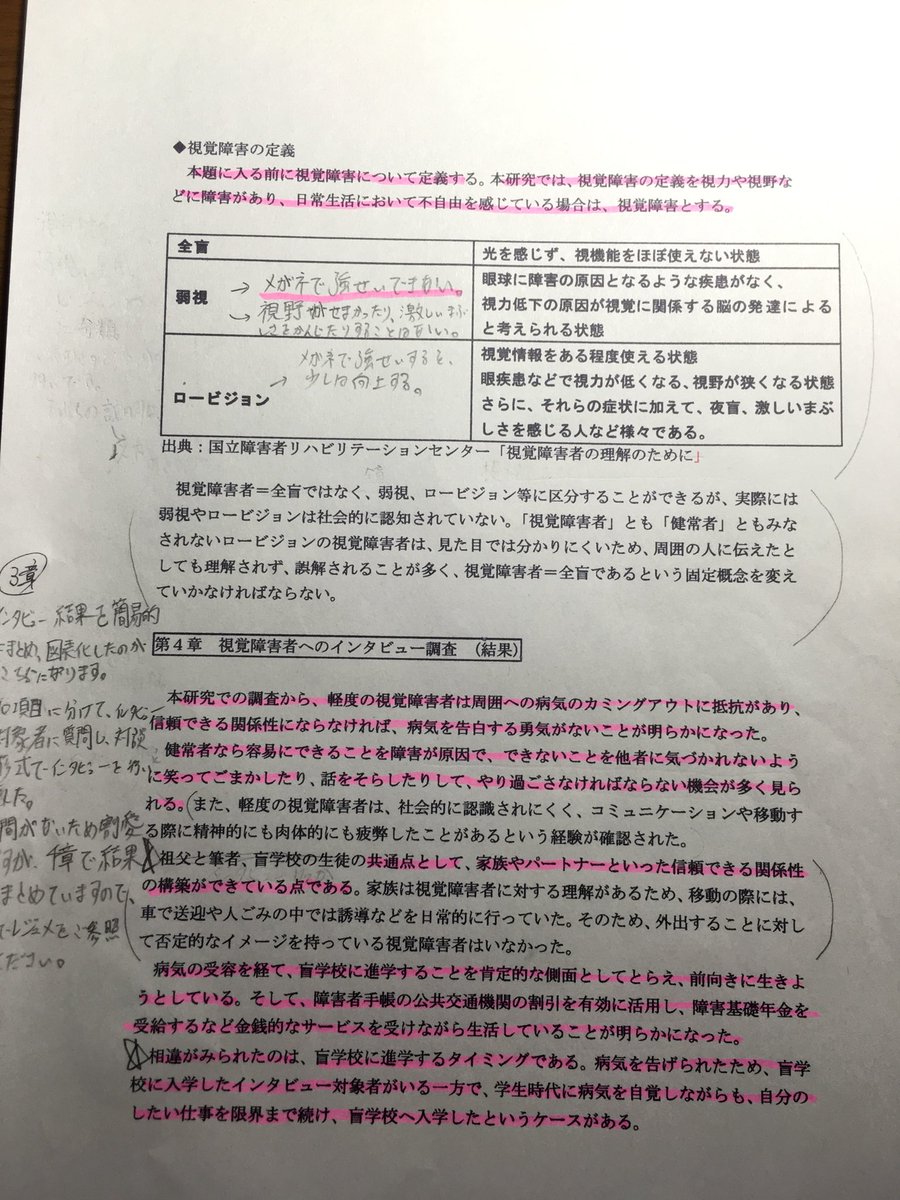 ◆視覚障害の定義
本題に入る前に視覚障害について定義する。本研究では、視覚障害の定義を視力や視野な
どに障害があり、日常生活において不自由を感じている場合は、視覚障害とする。
全盲
光を感じず、視機能をほぼ使えない状態
弱視
→ メガネで強せいできない。
→ 視野がせまかったり、激しいまぶ
しさをかんじたりすることはない。
眼球に障害の原因となるような疾患がなく、
視力低下の原因が視覚に関係する脳の発達による
と考えられる状態
ロービジョン
→ メガネで強せいすると、
少しは向上する。
視覚情報をある程度使える状態
眼疾患などで視力が低くなる、視野が狭くなる状態
さらに、それらの症状に加えて、夜盲、激しいまぶ
しさを感じる人など様々である。
出典：国立障害者リハビリテーションセンター「視覚障害者の理解のために」
視覚障害者＝全盲ではなく、弱視、ロービジョン等に区分することができるが、実際には
弱視やロービジョンは社会的に認知されていない。「視覚障害者」とも「健常者」ともみな
されないロービジョンの視覚障害者は、見た目では分かりにくいため、周囲の人に伝えたと
しても理解されず、誤解されることが多く、視覚障害者＝全盲であるという固定概念を変え
ていかなければならない。
3章
インタビュー結果を簡易的
まとめ、図表化したのが
こちらになります。
項目に分けて、インタビュー
対象者に質問し、対談
形式でインタビューを行い
ました。
間がないため割愛
すが、4章で結果
まとめていますので、
レジュメをご参照
ください。
第４章　視覚障害者へのインタビュー調査　（結果）
本研究での調査から、軽度の視覚障害者は周囲への病気のカミングアウトに抵抗があり、
信頼できる関係性にならなければ、病気を告白する勇気がないことが明らかになった。
健常者なら容易にできることを障害が原因で、できないことを他者に気づかれないよう
に笑ってごまかしたり、話をそらしたりして、やり過ごさなければならない機会が多く見ら
れる。また、軽度の視覚障害者は、社会的に認識されにくく、コミュニケーションや移動す
る際に精神的にも肉体的にも疲弊したことがあるという経験が確認された。
祖父と筆者、盲学校の生徒の共通点として、家族やパートナーといった信頼できる関係性
の構築ができている点である。家族は視覚障害者に対する理解があるため、移動の際には、
車で送迎や人ごみの中では誘導などを日常的に行っていた。そのため、外出することに対し
て否定的なイメージを持っている視覚障害者はいなかった。
病気の受容を経て、盲学校に進学することを肯定的な側面としてとらえ、前向きに生きよ
うとしている。そして、障害者手帳の公共交通機関の割引を有効に活用し、障害基礎年金を
受給するなど金銭的なサービスを受けながら生活していることが明らかになった。
相違がみられたのは、盲学校に進学するタイミングである。病気を告げられたため、盲学
校に入学したインタビュー対象者がいる一方で、学生時代に病気を自覚しながらも、自分の
したい仕事を限界まで続け、盲学校へ入学したというケースがある。